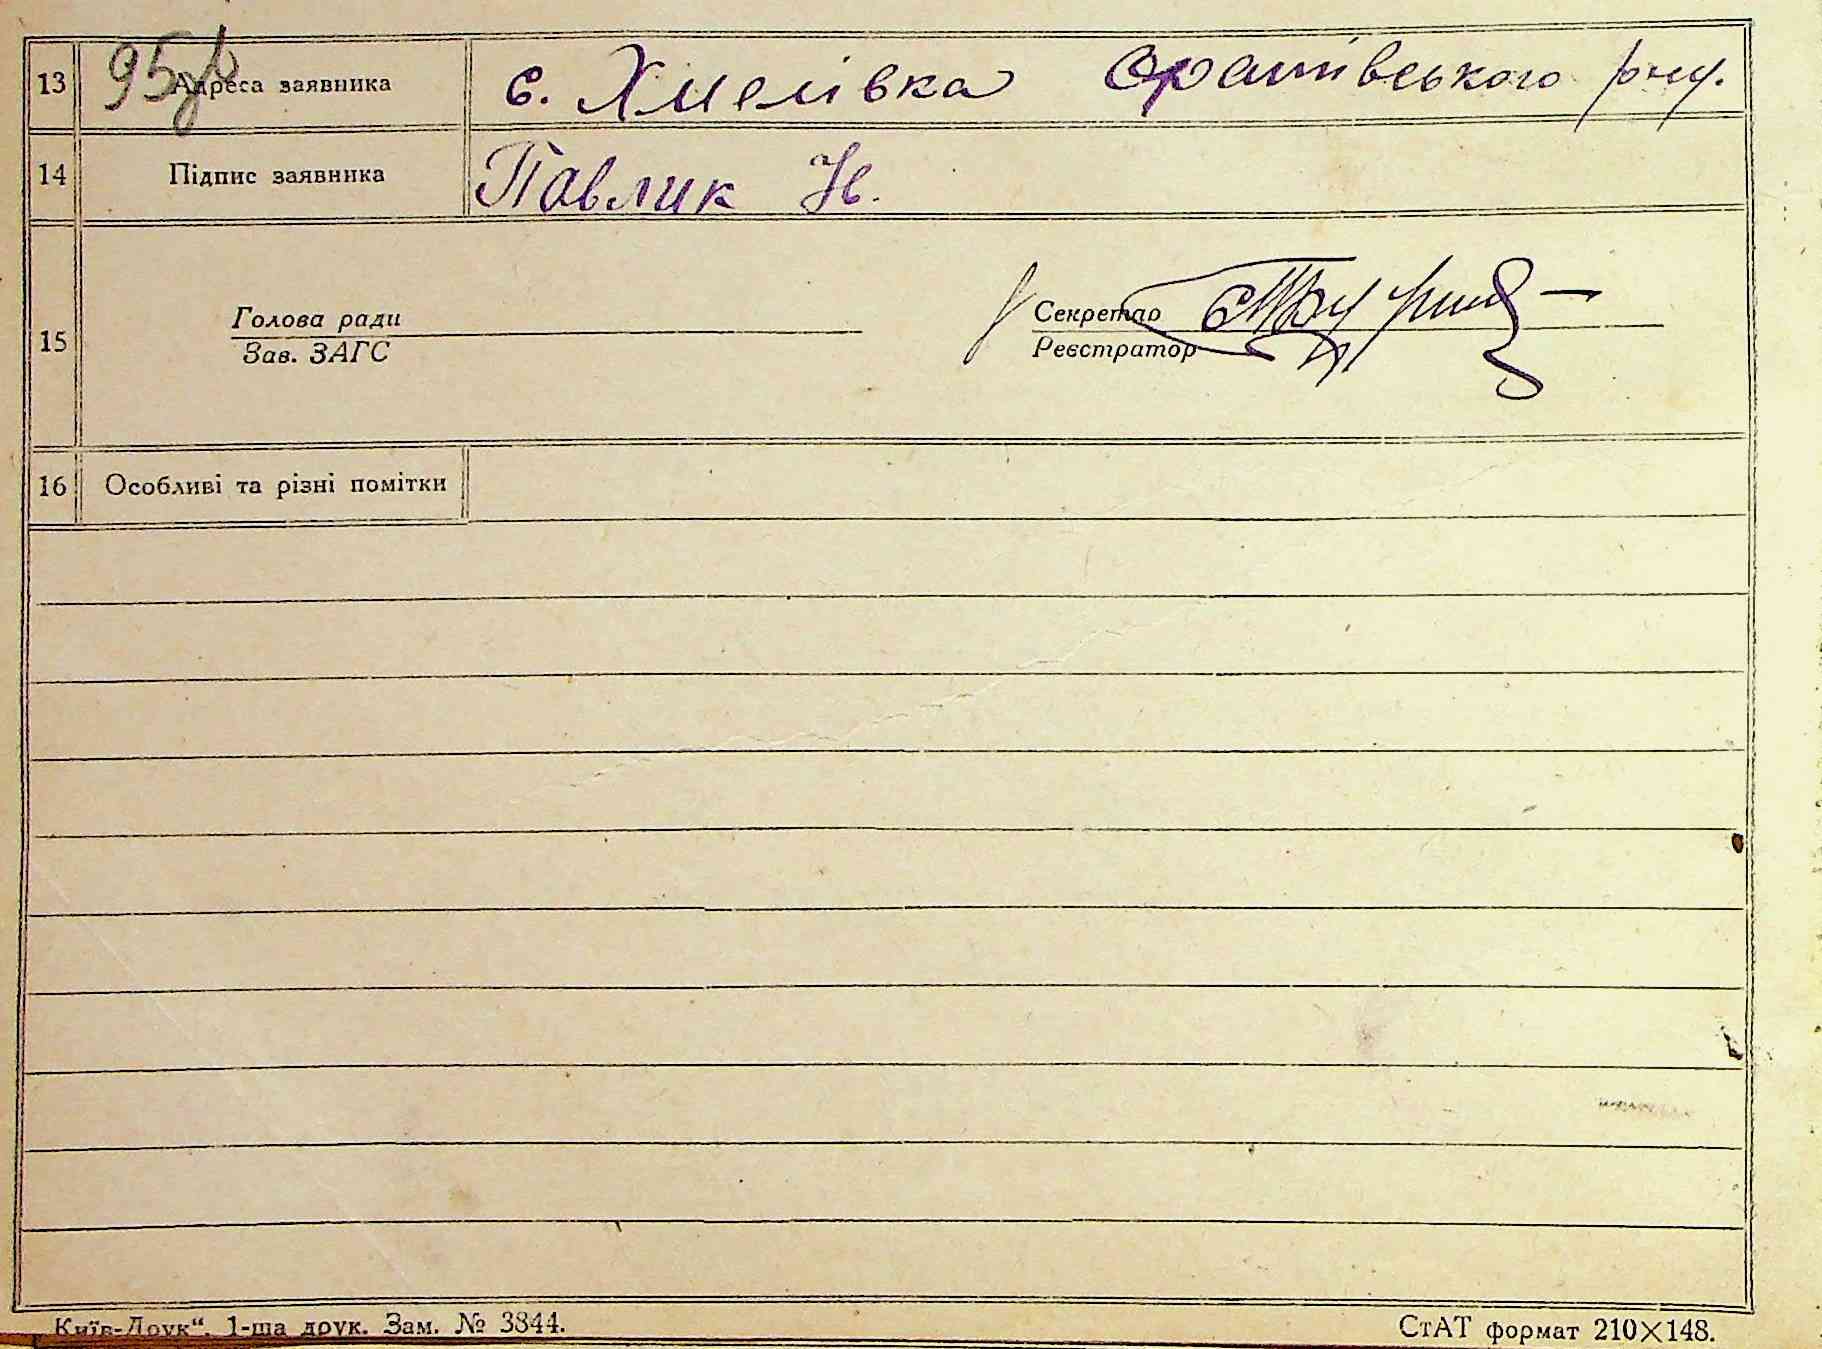 13 Адреса заявника с. Хмелівка Оратівського р-ну.
95зв
14 Підпис заявника Павлик Н.
15 Голова ради Секретар
Зав. ЗАГС Реєстратор
16 Особливі та різні помітки
Київ-Друк“. 1-ша друк. Зам. № 3844. СтАТ формат 210×148.